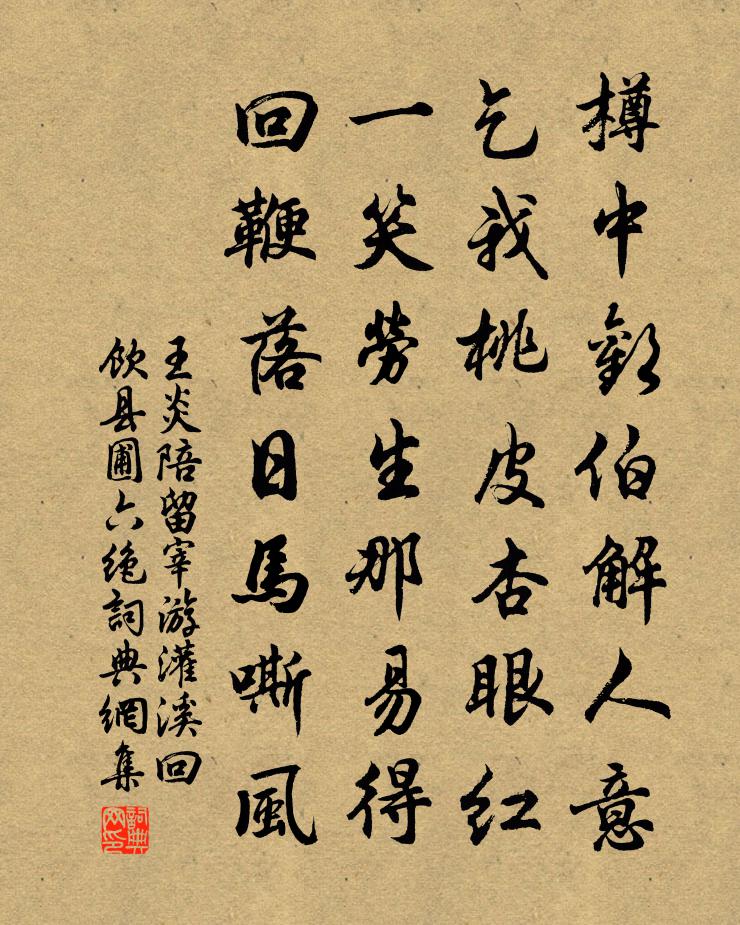 樽中歡伯解人意
乞我桃皮杏眼紅
一笑勞生那易得
回鞭落日馬嘶風
王炎陪留宰游灌溪回
飲县圃六絶詞典網集
詞典网印